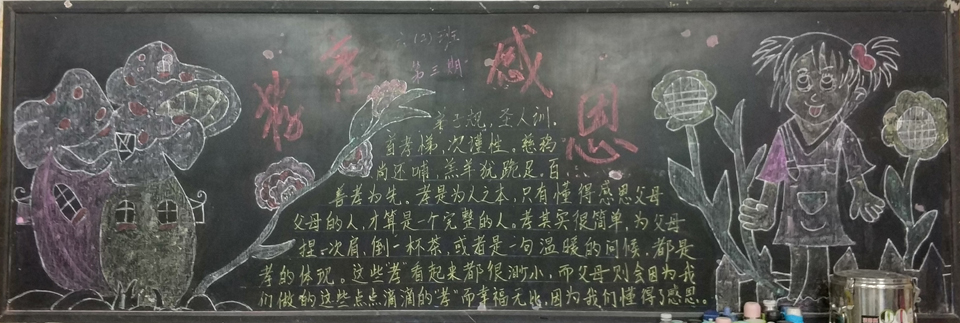 六(2)班
第三期
孝亲感恩
弟子规,圣人训,
首孝悌,次谨性。慈鸦
尚还哺,羔羊犹跪足。百
善孝为先。孝是为人之本,只有懂得感恩父母
父母的人,才算是一个完整的人。孝其实很简单,为父母
捏一次肩,倒一杯茶,或者是一句温暖的问候,都是
孝的体现。这些"孝"看起来都很渺小,而父母则会因为我
们做的这些点点滴滴的"孝"而幸福无比,因为我们懂得了感恩。